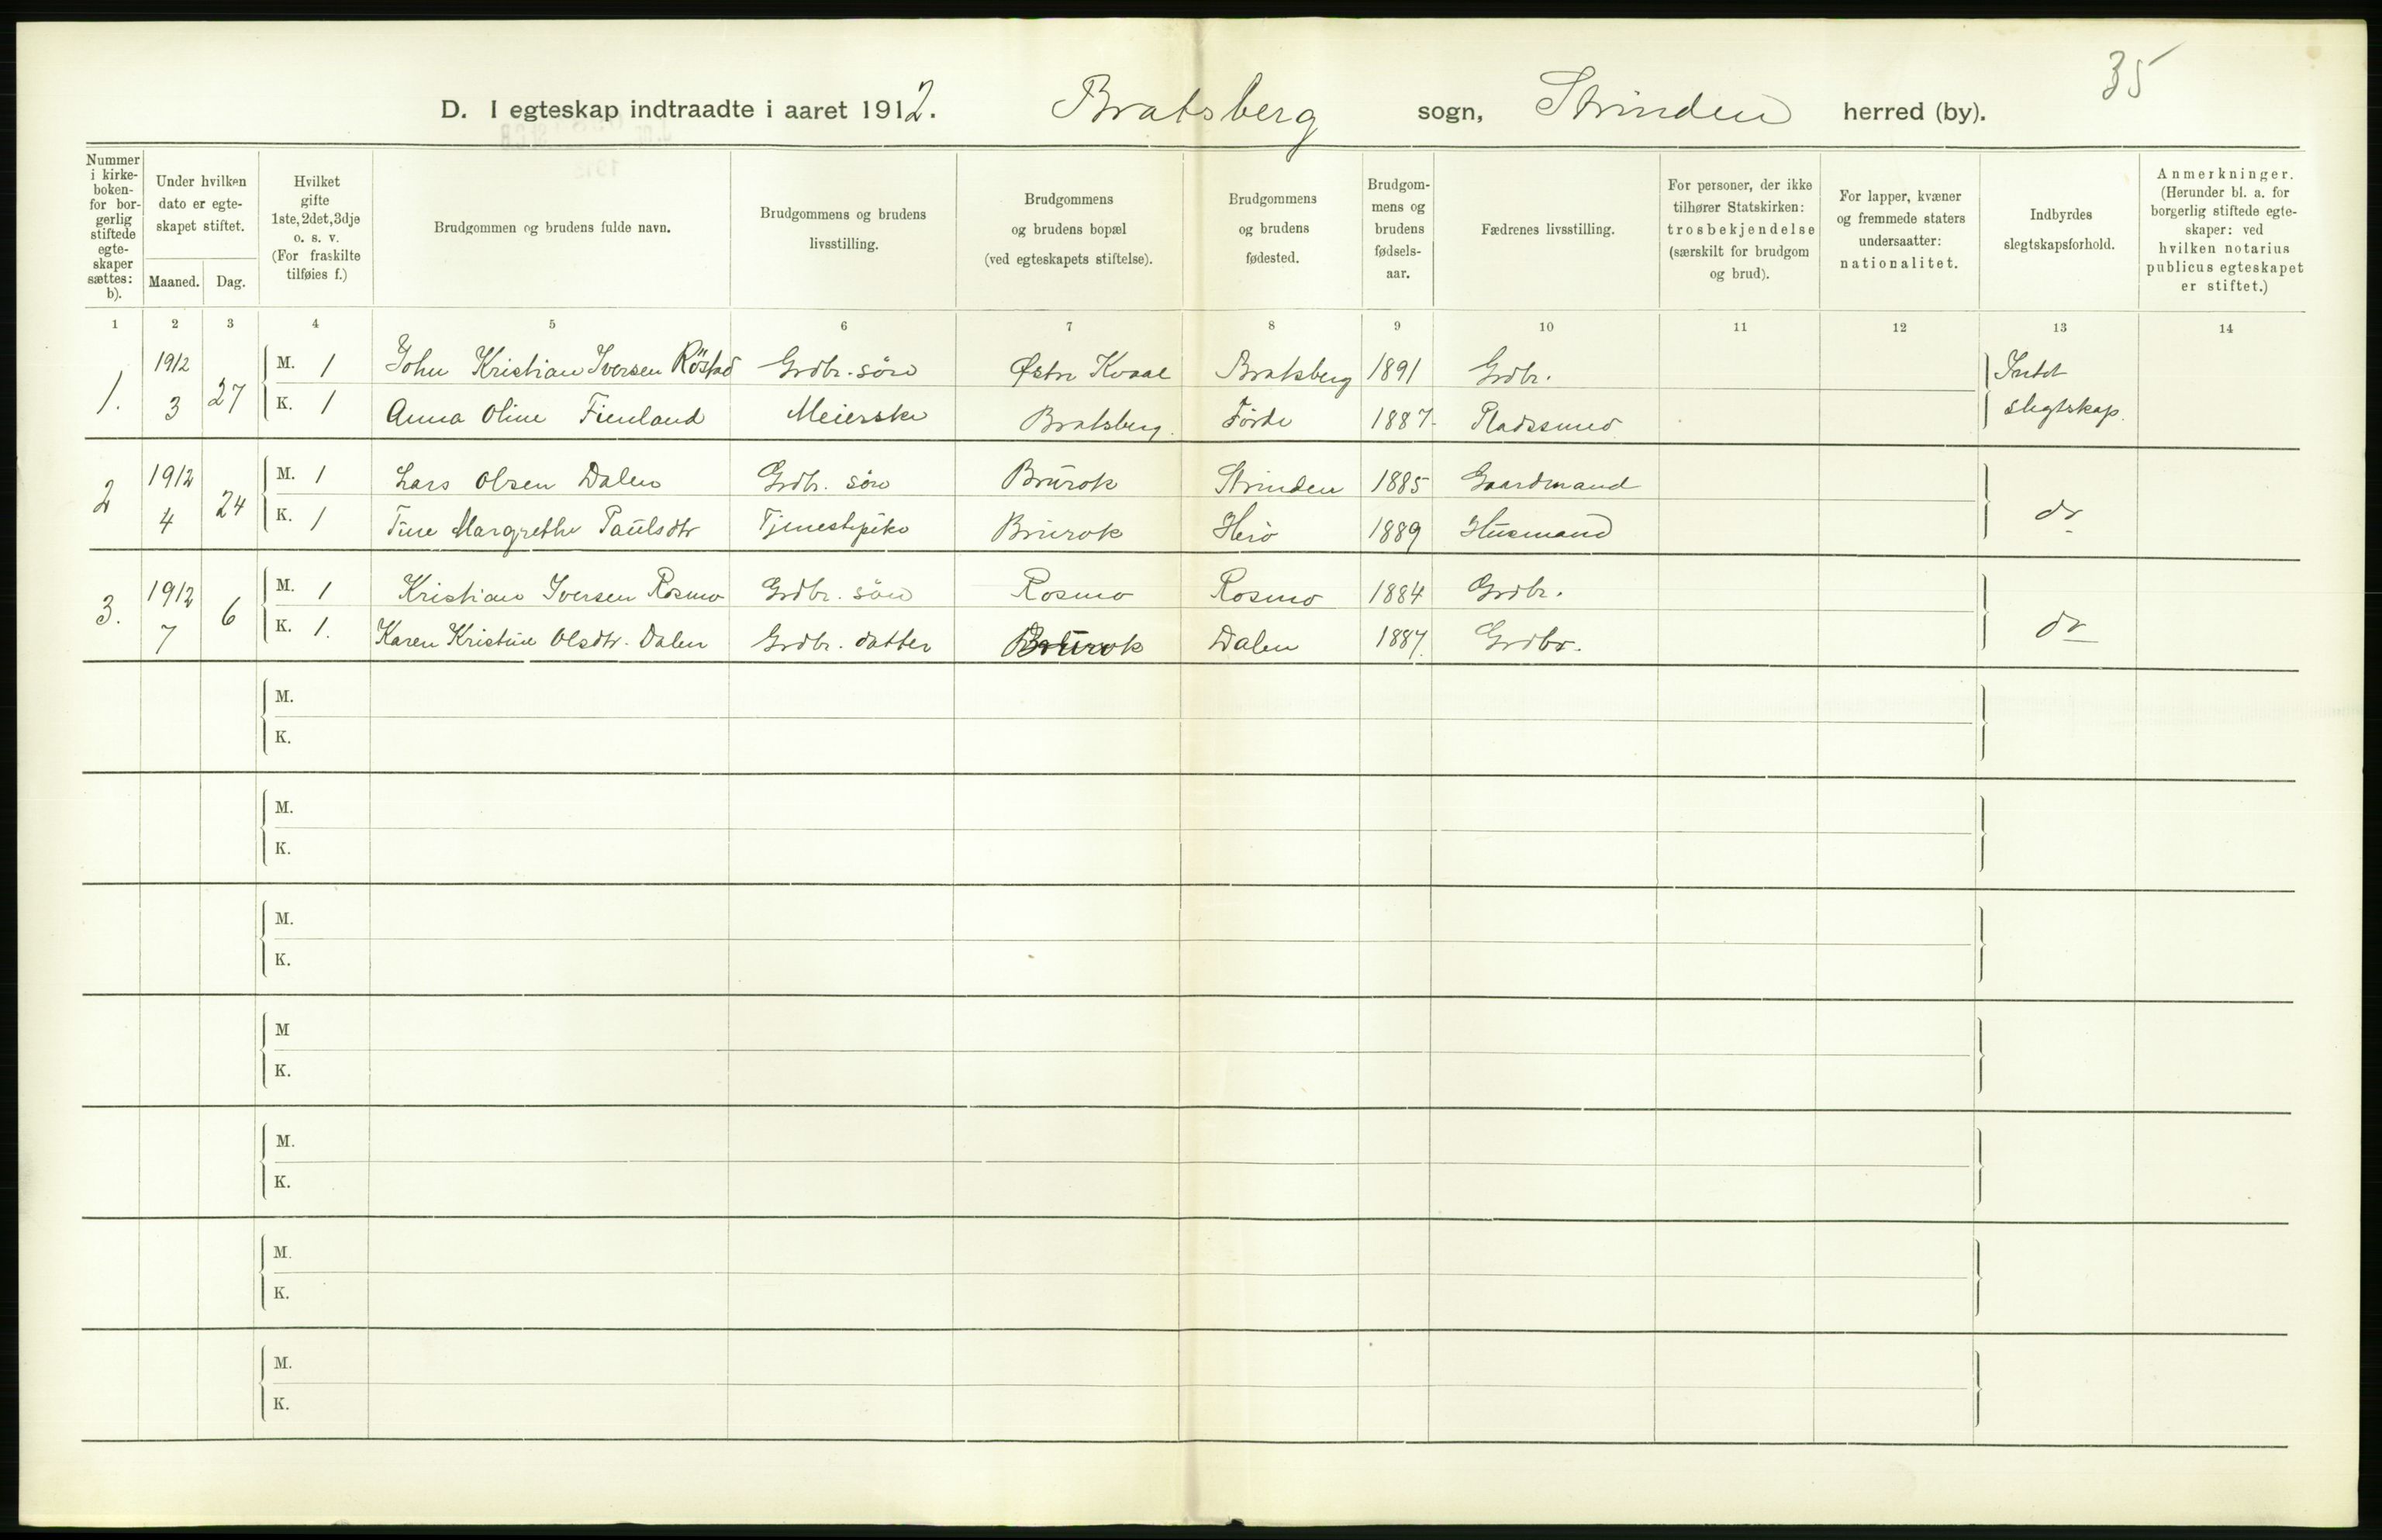 35
D. I egteskap indtraadte i aaret 1912. Bratsberg sogn, Strinden herred (by).
Nummer i kirke-boken- for bor-gerlig stiftede egte-skaper sættes: b).
Under hvilken dato er egte-skapet stiftet.
Maaned. Dag.
Hvilket gifte 1ste, 2det, 3dje o. s. v. (For fraskilte tilføies f.)
Brudgommen og brudens fulde navn.
Brudgommens og brudens livsstilling.
Brudgommens og brudens bopæl (ved egteskapets stiftelse).
Brudgommens og brudens fødested.
Brudgom-mens og brudens fødsels-aar.
Fædrenes livsstilling.
For personer, der ikke tilhører Statskirken: trosbekjendelse (særskilt for brudgom og brud).
For lapper, kvæner og fremmede staters undersaatter: nationalitet.
Indbyrdes slegtskapsforhold.
Anmerkninger. (Herunder bl. a. for borgerlig stiftede egte-skaper: ved hvilken notarius publicus egteskapet er stiftet.)
1 2 3 4 5 6 7 8 9 10 11 12 13 14
1. 1912 3 27 M. 1 John Kristian Iversen Röstad Grdbr. sön Østre Kvaal Bratsberg 1891 Grdbr. Intet
K. 1 Anna Oline Fienland Meierske Bratsberg. Förde 1887. Pladssmed slegtskap.
2 1912 4 24 M. 1 Lars Olsen Dalen Grdbr. sön Brurok Strinden 1885 Gaardmand do
K. 1 Tine Margrethe Paulsdtr Tjenestepike Brurok Herö 1889 Husmand
3. 1912 7 6 M. 1 Kristian Iversen Rosmo Grdbr. sön Rosmo Rosmo 1884 Grdbr. do
K. 1. Karen Kristine Olsdtr. Dalen Grdbr. datter Brurok Dalen 1887. Grdbr.
M.
K.
M.
K.
M.
K.
M
K.
M.
K.
M.
K.
M.
K.